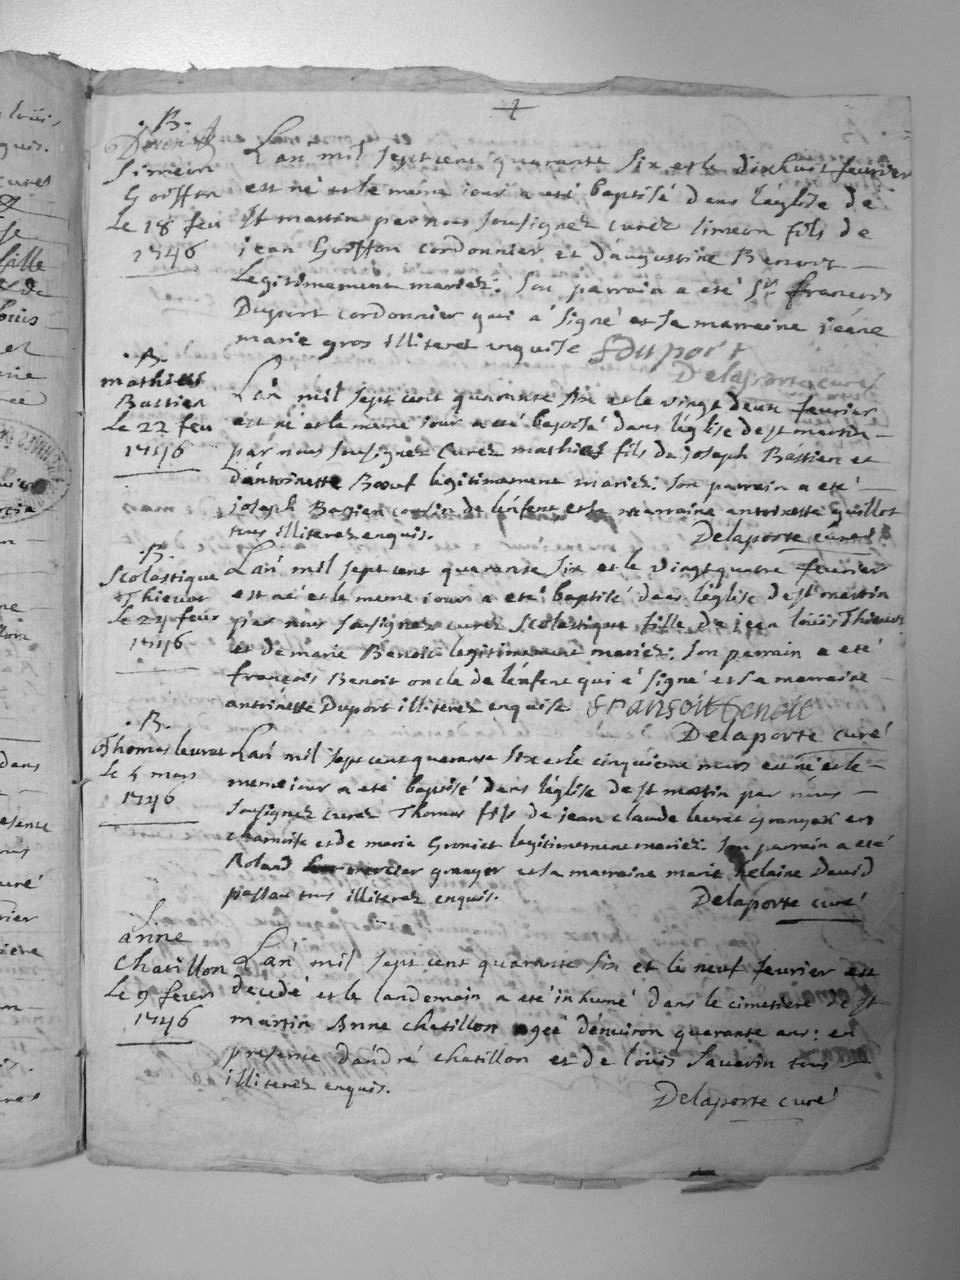 .B.
Simeon
Goiffon
Le 18 feu
1746
L'an mil sept cent quarante six et le dixhuit feurier
est né et le meme iour a eté baptisé dans l'église de
St martin par nous sousignez curez simeon fils de
jean Goiffon cordonnier et d'augustine Benoit
legitimement mariez. son parrain a eté Sr françois
Duport cordonnier qui a signé et sa marraine
marie gros illiteret enquise fduport
Delaporte curez
.B.
mathieu
Bastien
Le 22 feu
1746
L'an mil sept cent quarante six et le vingt deux feurier
est né et le meme iour a eté baptisé dans l'église de st martin
par nous sousignez curez mathieu fils de joseph Bastien et
d'antoinette Bœuf légitimement mariez. son parrain a eté
joseph Bastien cousin de l'enfent et sa marraine antoinette guillot
tous illiterez enquis. Delaporte curez
.B.
Scolastique
Thieuot
le 24 feur
1746
L'an mil sept cent quarante six et le vingt quatre feurier
est né et le meme iours a eté baptisé dans l'église de st martin
par nous sousignez curez Scolastique fille de jean louis Thieuot
et de marie Benoit legitimement mariez. son parrain a eté
françois Benoit oncle de l'enfent qui a signé et sa marraine
antoinette Duport illiterez enquise fransoit benoit
Delaporte curé
.B.
Thomas leuret
le 5 mars
1746
L'an mil sept cent quarante six et le cinquième mars est né et le
meme iour a eté baptisé dans l'église de st martin par nous
sousignez curez Thomas fils de jean claude leuret granger en
et de marie legitimement mariez. son parrain a eté
Roland mercier granger et sa marraine marie helaine Dauid
tous illiterez enquis. Delaporte curé
anne
Chatillon
Le 9 feurer
1746
L'an mil sept cent quarante six et le neuf feurier est
decedé et le landemain a eté inhumé dans le cimetiere de st
martin Anne chatillon agee d'enuiron quarante ans: en
presence d'andré chatillon et de louis sauerin tous
illiterez enquis.
Delaporte curé